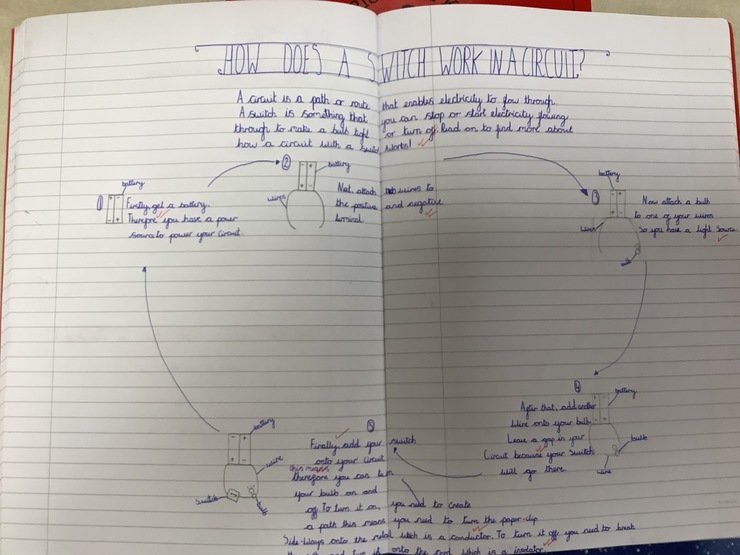 HOW DOES A SWITCH WORK IN A CIRCUIT?
A circuit is a path or route that enables electricity to flow through.
A switch is something that you can stop or start electricity flowing
through to make a bulb light or turn off. Read on to find more about
how a circuit with a switch works!
1
battery
Firstly get a battery.
Therefore you have a power
source to power your circuit.
2
battery
wires
Next, attach two wires to
the positive and negative
terminal.
3
battery
wires
bulb
Now attach a bulb
to one of your wires
so you have a light source.
4
battery
bulb
wire
After that, add another
wire onto your bulb.
Leave a gap in your
Circuit because your switch
will go there.
5
battery
wire
switch
bulb
Finally, add your switch
onto your circuit
this means
therefore you can turn
your bulb on and
off. To turn it on, you need to create
a path this means you need to turn the paper-clip
Side-ways onto the metal which is a conductor. To turn it off you need to break
onto the which is a insulator